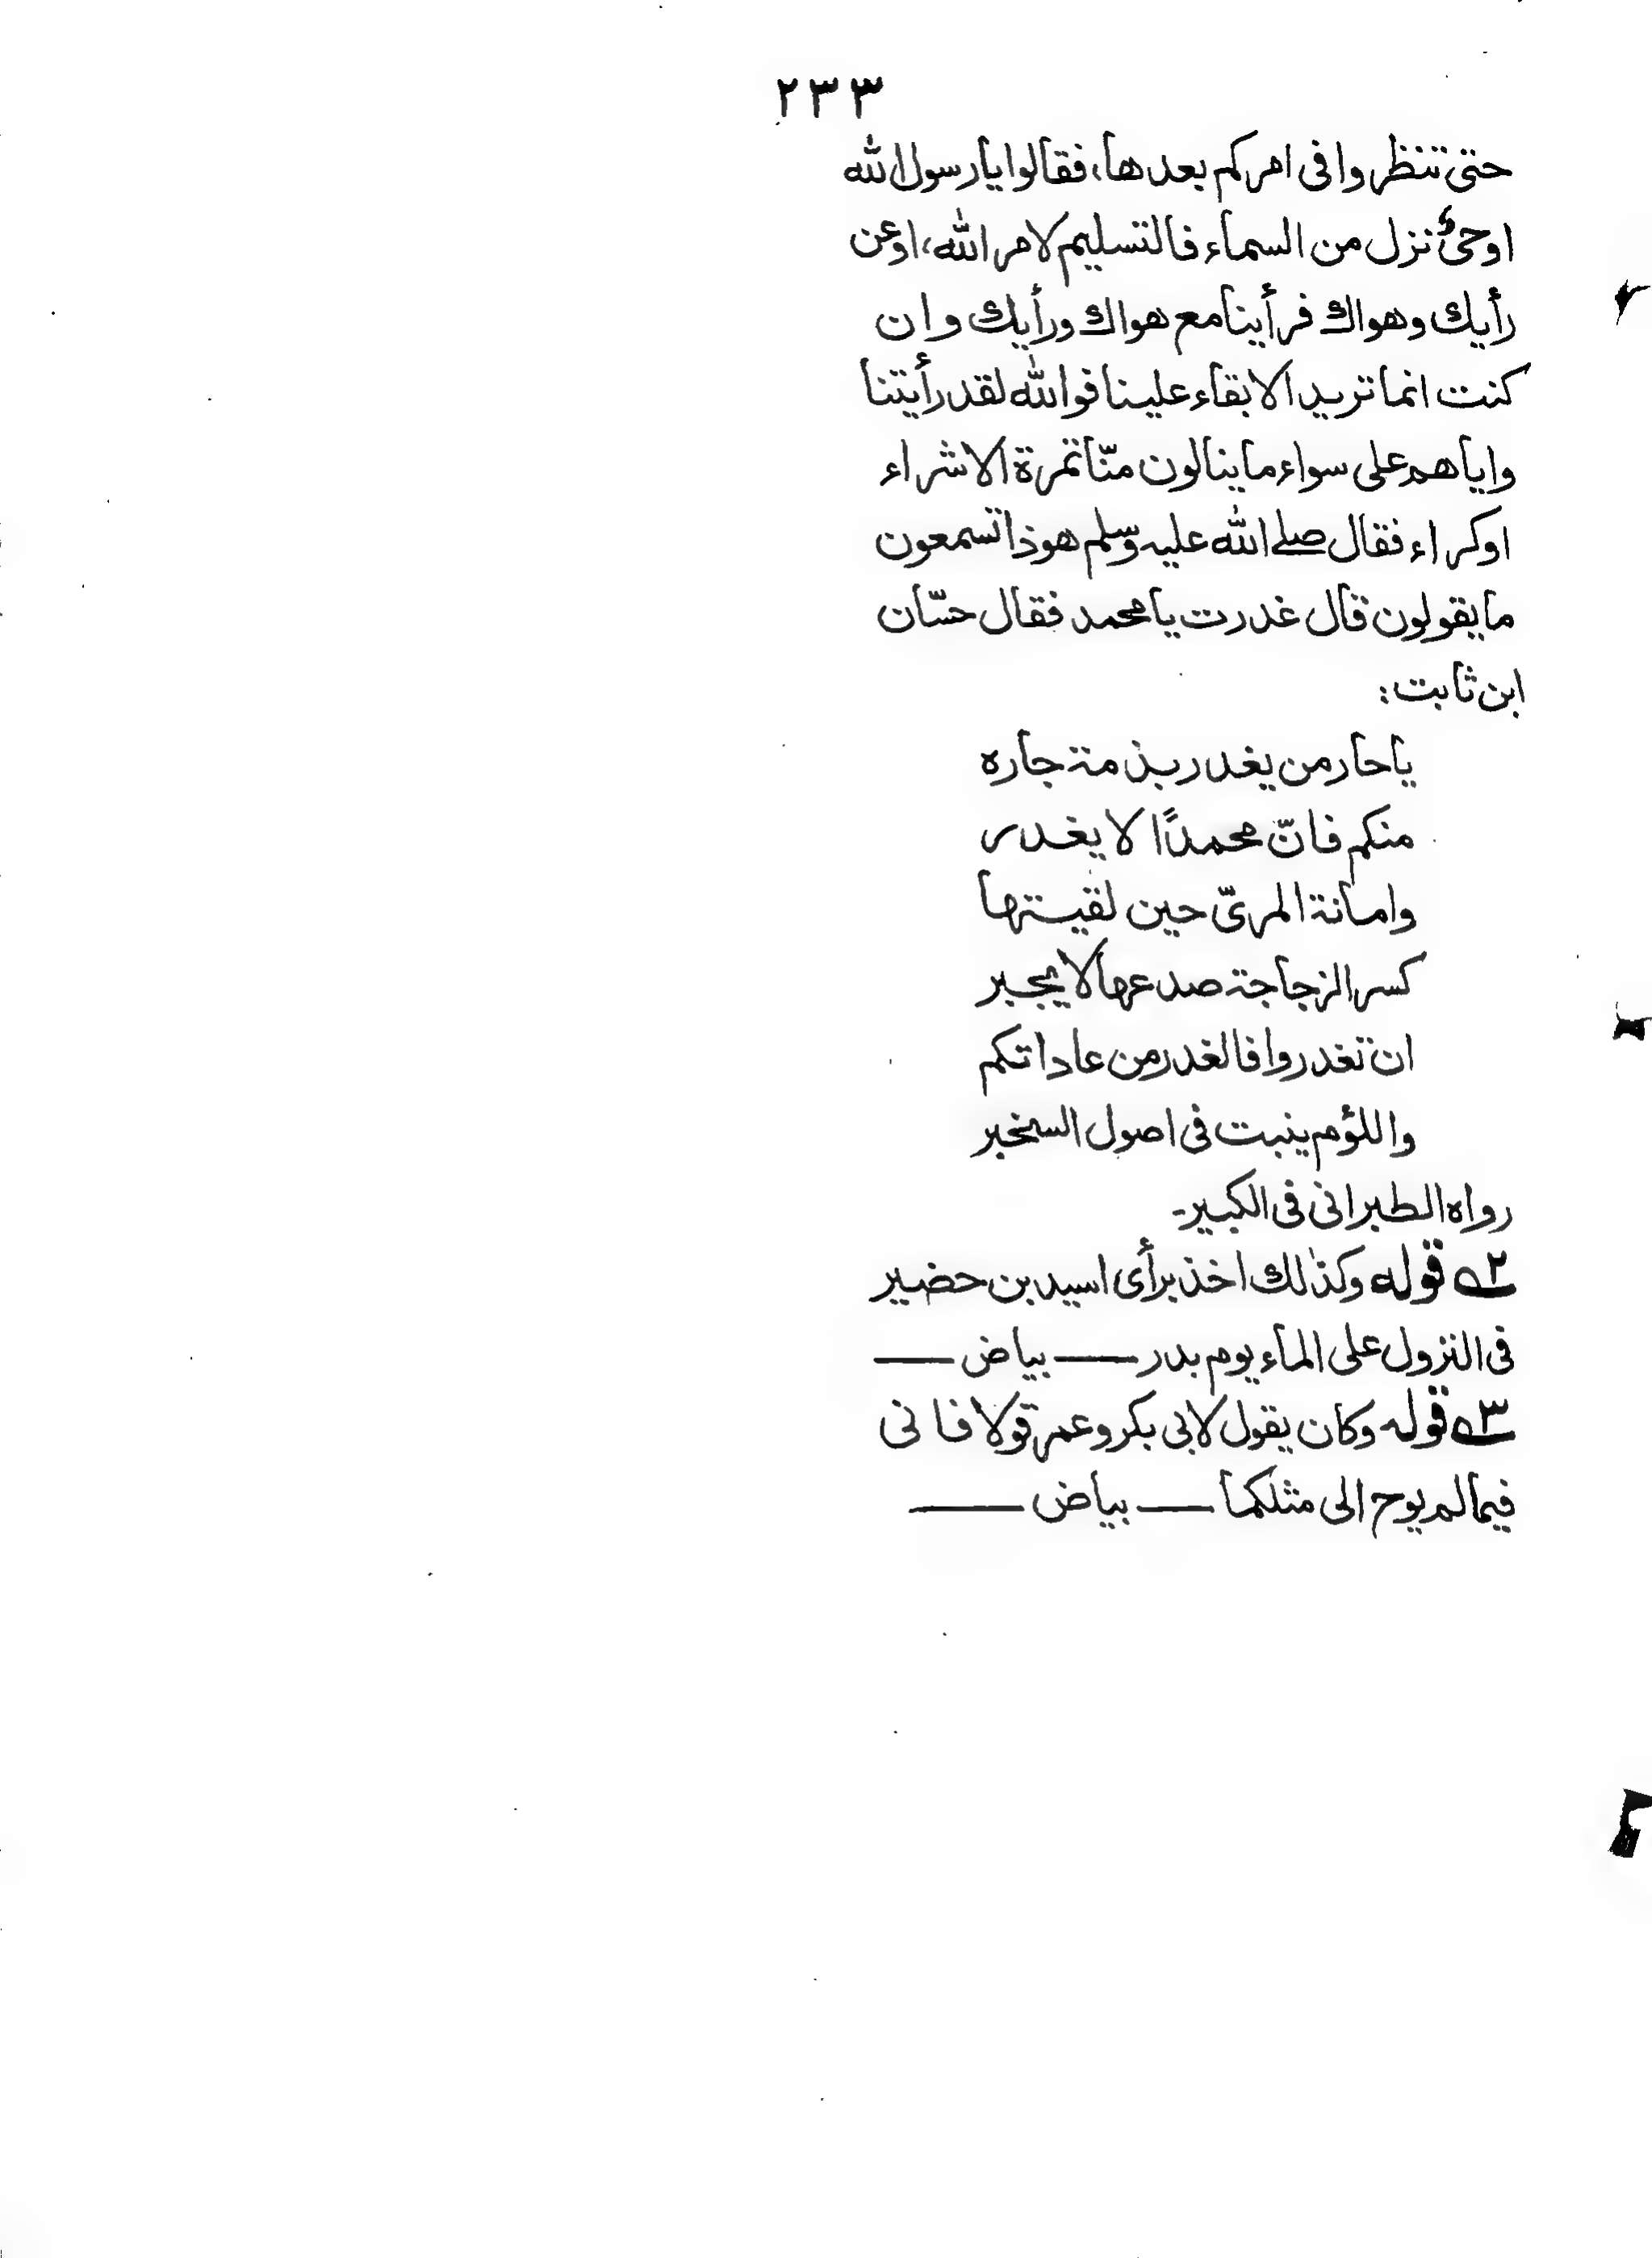 ٢٣٣
حتى تنظروا فى امركم بعدها، فقالوا يا رسول الله
اوحىٌ نزل من السماء فالتسليم لامر الله، او عن
رأيك وهواك فرأينا مع هواك ورأيك و ان
كنت انما تريد الابقاء علينا فوالله لقد رأيتنا
واياهم على سواء ما ينالون منّا تمرة الا شراء
او كراء فقال صلے الله عليه وسلم هوذا تسمعون
ما يقولون قال غدرت يا محمد فقال حسّان
ابن ثابت:
يا حار من يغدر بذمة جاره
منكم فانّ محمدًا لا يغدر
وامانة المرىّ حين لقيتها
كسر الزجاجة صدعها لا يجبر
ان تغدروا فالغدر من عاداتكم
واللؤم ينبت فى اصول السخبر
رواه الطبرانى فى الكبير۔
٢ قوله وكذٰلك اخذ برأى اسيد بن حضير
فى النزول على الماء يوم بدر —— بياض ——
٣ قوله وكان يقول لابى بكر وعمر قولا فانى
فيما لم يوح الى مثلكما —— بياض ——